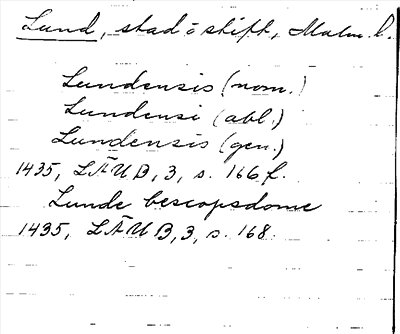 Lund, stad o stift, Malm. l.
Lundensis (nom.)
Lundensi (abl.)
Lundensis (gen.)
1435, LÄUB, 3, s. 166 f.
Lunde bescopsdome
1435, LÄUB, 3, s. 168.